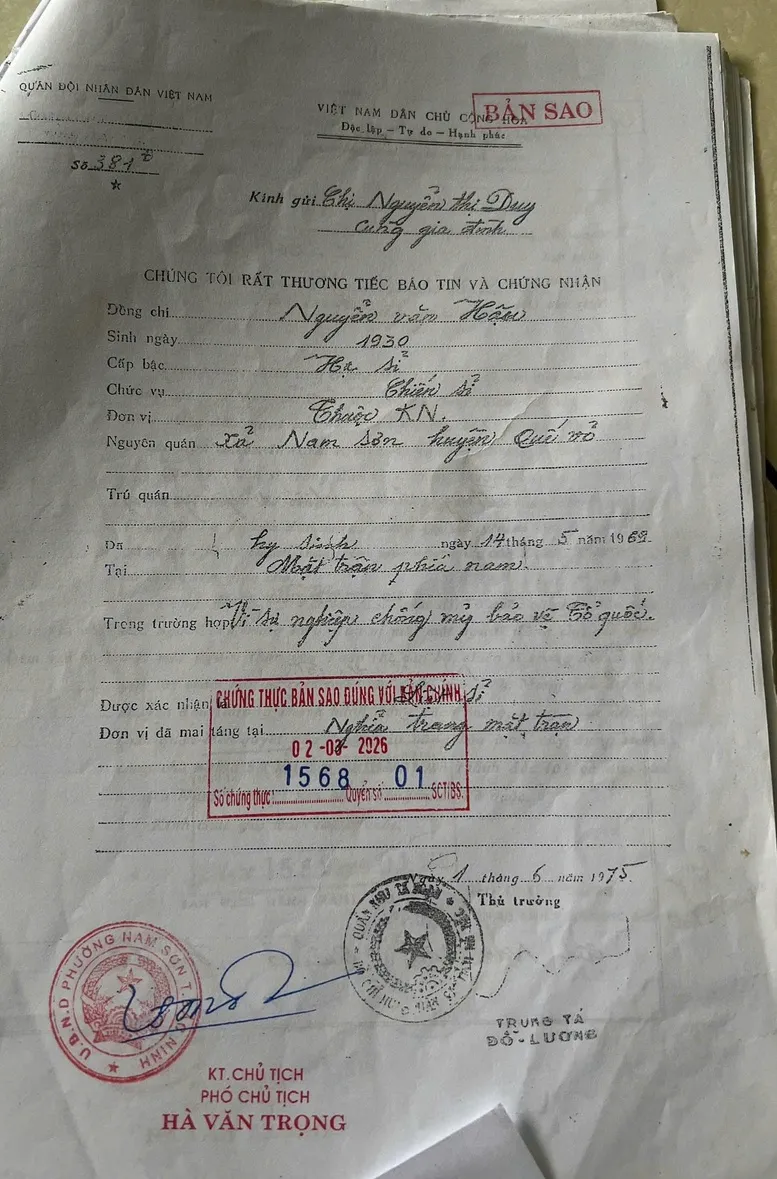 QUÂN ĐỘI NHÂN DÂN VIỆT NAM
Số 381
VIỆT NAM DÂN CHỦ CỘNG HÒA
BẢN SAO
Độc lập – Tự do – Hạnh phúc
Kính gửi Chị Nguyễn thị Duy
cùng gia đình
CHÚNG TÔI RẤT THƯƠNG TIẾC BÁO TIN VÀ CHỨNG NHẬN
Đồng chí Nguyễn văn Hậu
Sinh ngày 1930
Cấp bậc Hạ sĩ
Chức vụ Chiến sĩ
Đơn vị Thuộc KN.
Nguyên quán xã Nam sơn huyện Quế võ
Trú quán
Đã hy sinh ngày 14 tháng 5 năm 1969
Tại Mặt trận phía nam
Trong trường hợp Vì sự nghiệp chống mỹ bảo vệ Tổ quốc.
Được xác nhận là sĩ
CHỨNG THỰC BẢN SAO ĐÚNG VỚI BẢN CHÍNH
Đơn vị đã mai táng tại Nghĩa trang mặt trận
02-03-2026
1568 01
Số chứng thực: Quyển số SCT/BS.
Ngày 1 tháng 6 năm 1975
Thủ trưởng
U.B.N.D PHƯỜNG NAM SƠN T. BẮC NINH
TRUNG TÁ
ĐỖ-LƯƠNG
KT.CHỦ TỊCH
PHÓ CHỦ TỊCH
HÀ VĂN TRỌNG